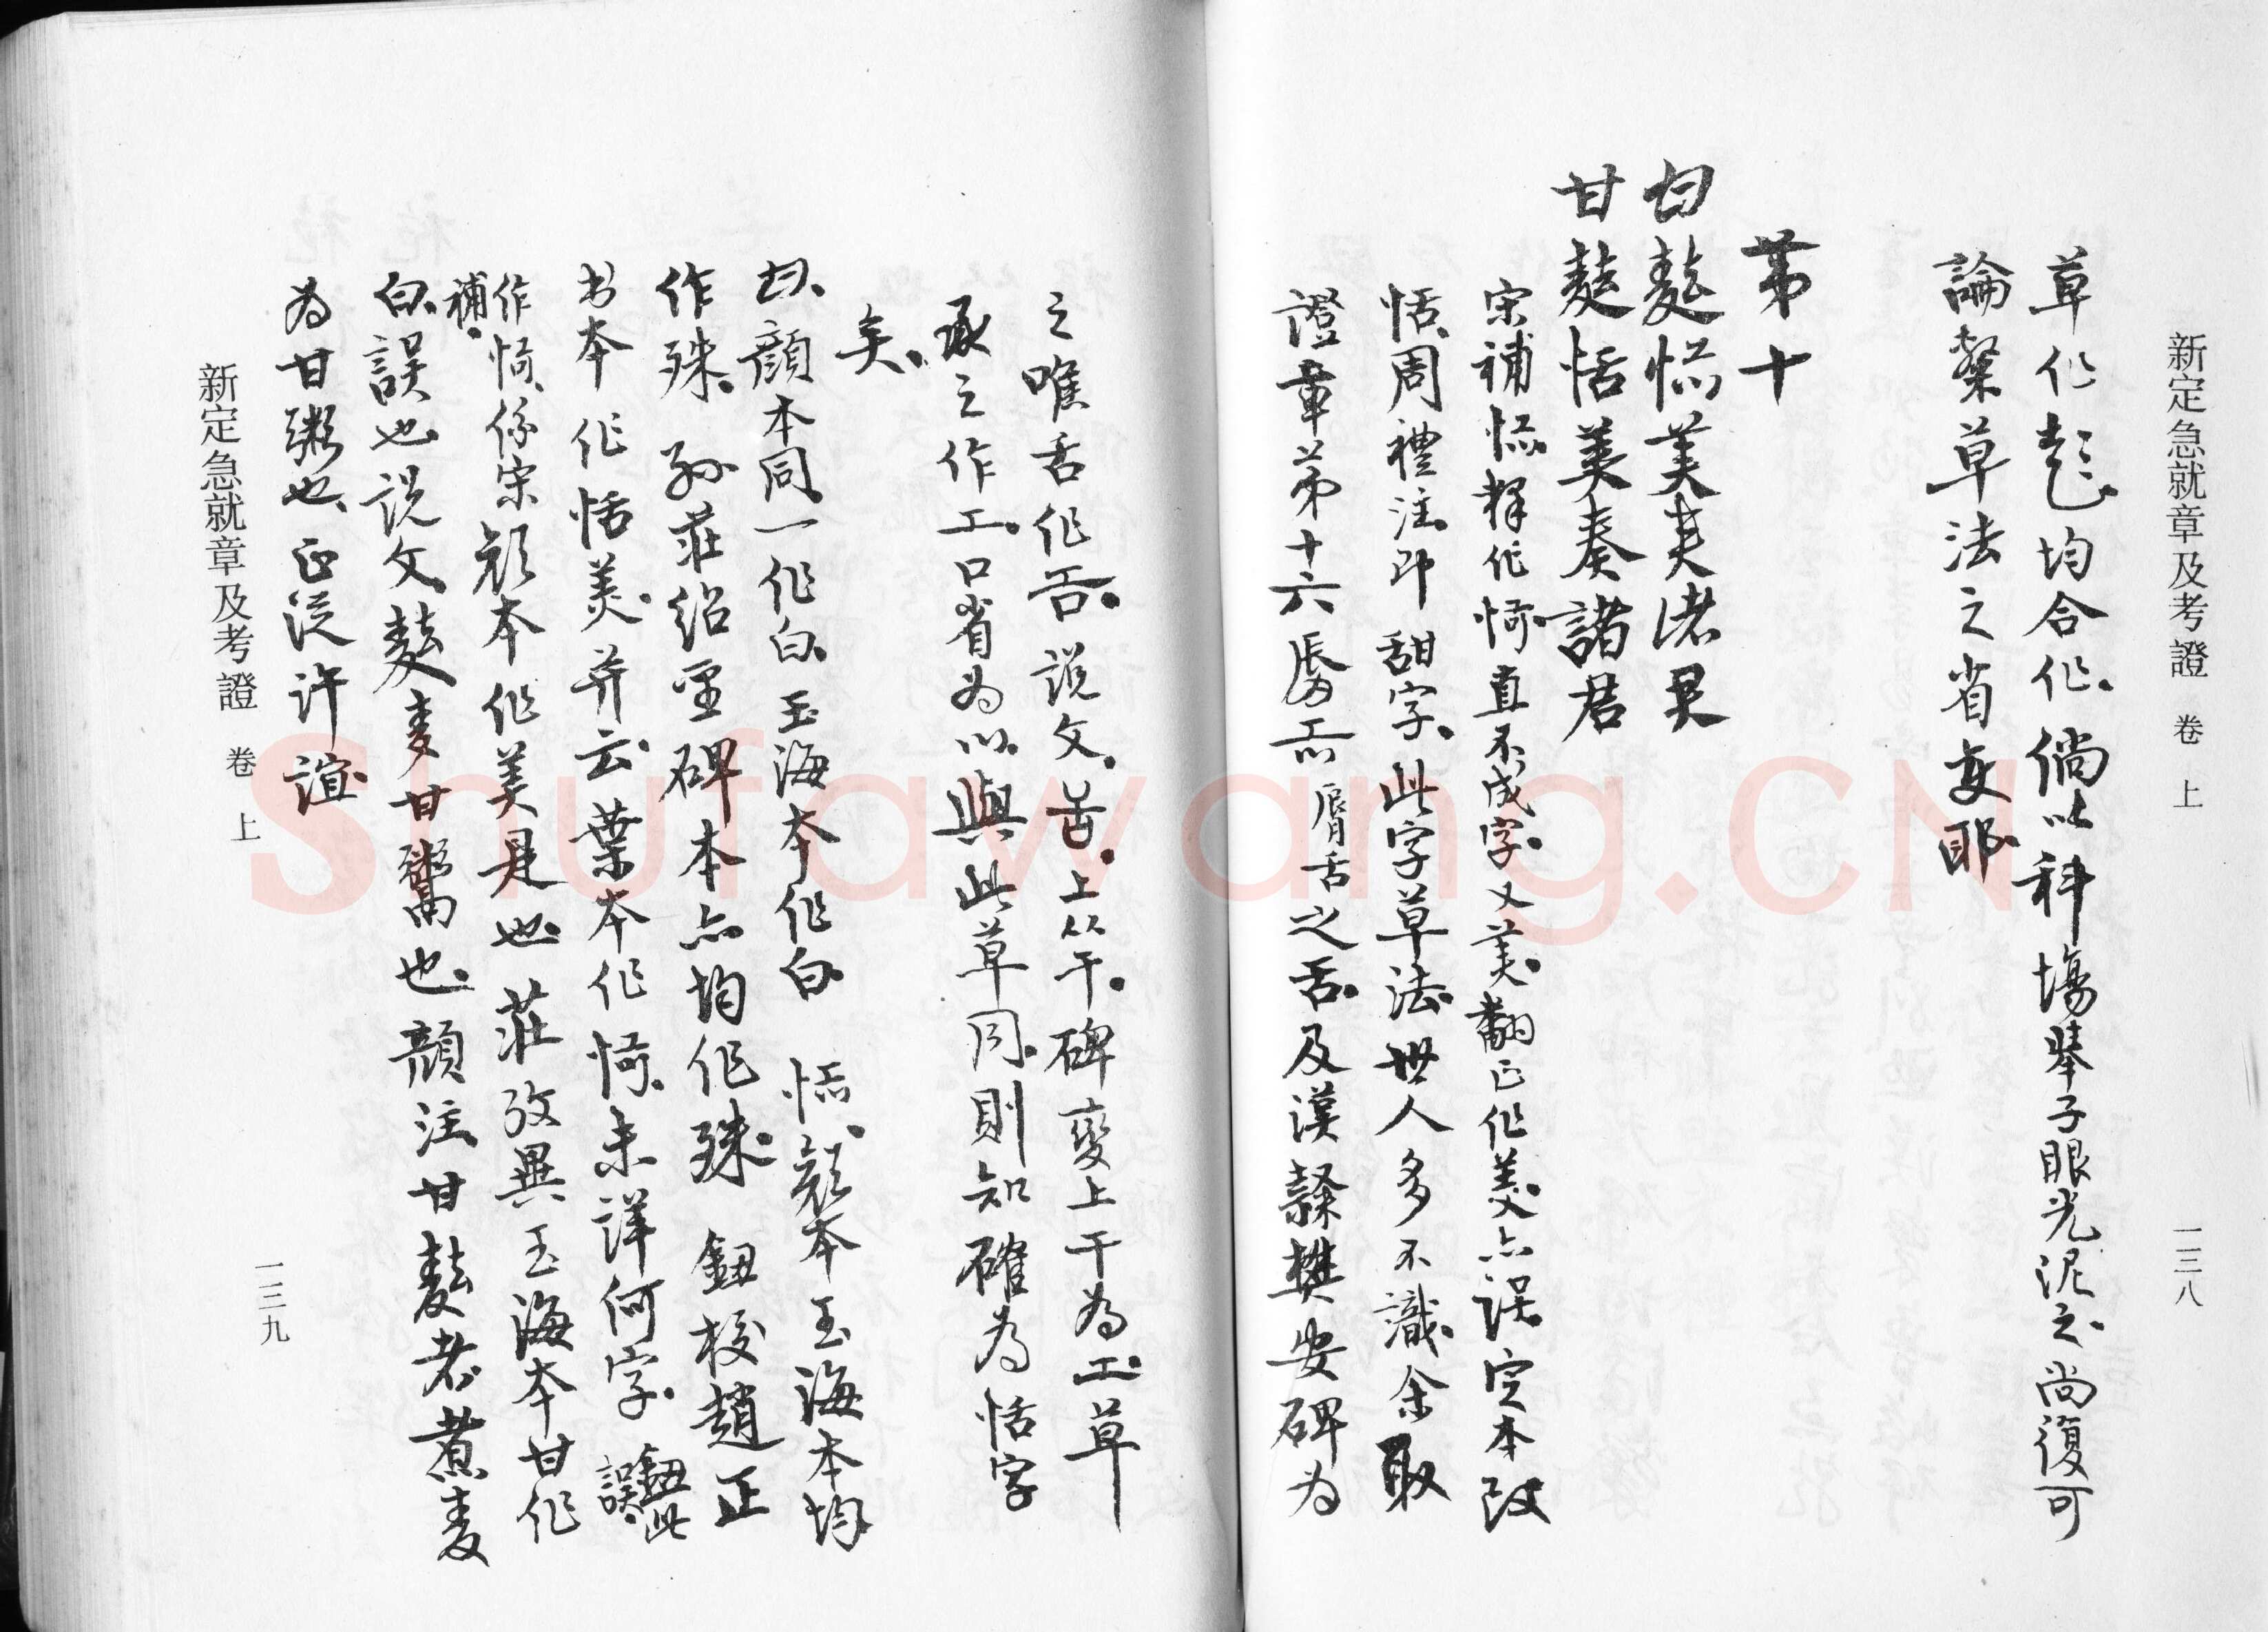 新定急就章及考證 卷上 一三八
草作均合作倘以科場舉子眼光泥之尚復可
論槃草法之省变耶
第十
甘麩恬美奏諸君
甘麩恬美奏諸君
宋補恬釋作㤎直不成字又美翻正作美亦误定本改
恬周禮注即甜字此字草法世人多不識余取
證章第十六唇舌之舌及漢隸樊安碑为
之唯舌作舌說文舌上从干碑變上干为工草
承之作工口省为以與此草同則知確为恬字
矣
甘顏本同一作白玉海本作白 恬顏本玉海本均
作殊孙莊绍聖碑本亦均作殊鈕校趙正
书本作恬美并云葉本作㤎未详何字鈕此誤
作㤎係宋補顏本作美是也莊攷異玉海本甘作
白誤也说文麩麦甘鬻也顏注甘麩者煮麦
为甘粥也正從许誼
新定急就章及考證 卷上 一三九
Shufawang.CN